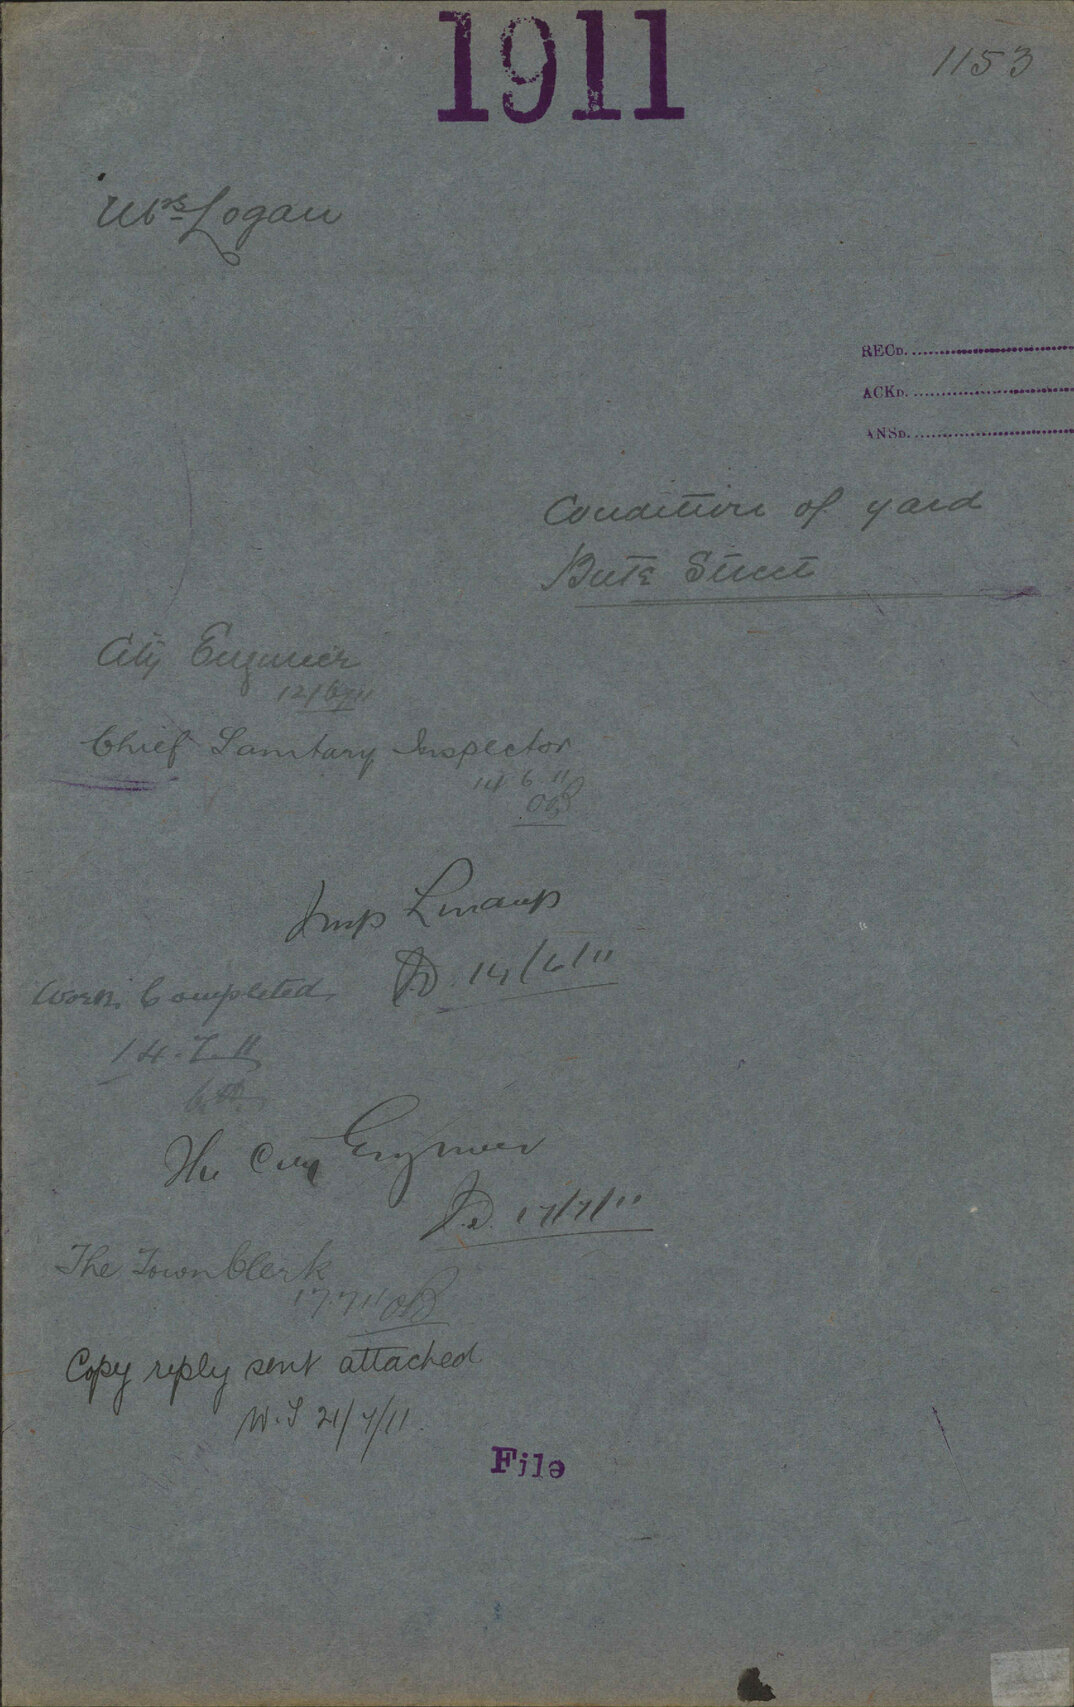 1911
1153
Mrs Logan
RECD.
ACKD.
ANSD.
Condition of yard
Bute Street
City Engineer
12/6/11
Chief Sanitary Inspector
14 6 11
Insp
14/6/11
Work Completed
14.7.11
The City Engineer
J.D. 17/7/11
The Town Clerk
17.7.11
Copy reply sent attached
W.S 21/7/11
File